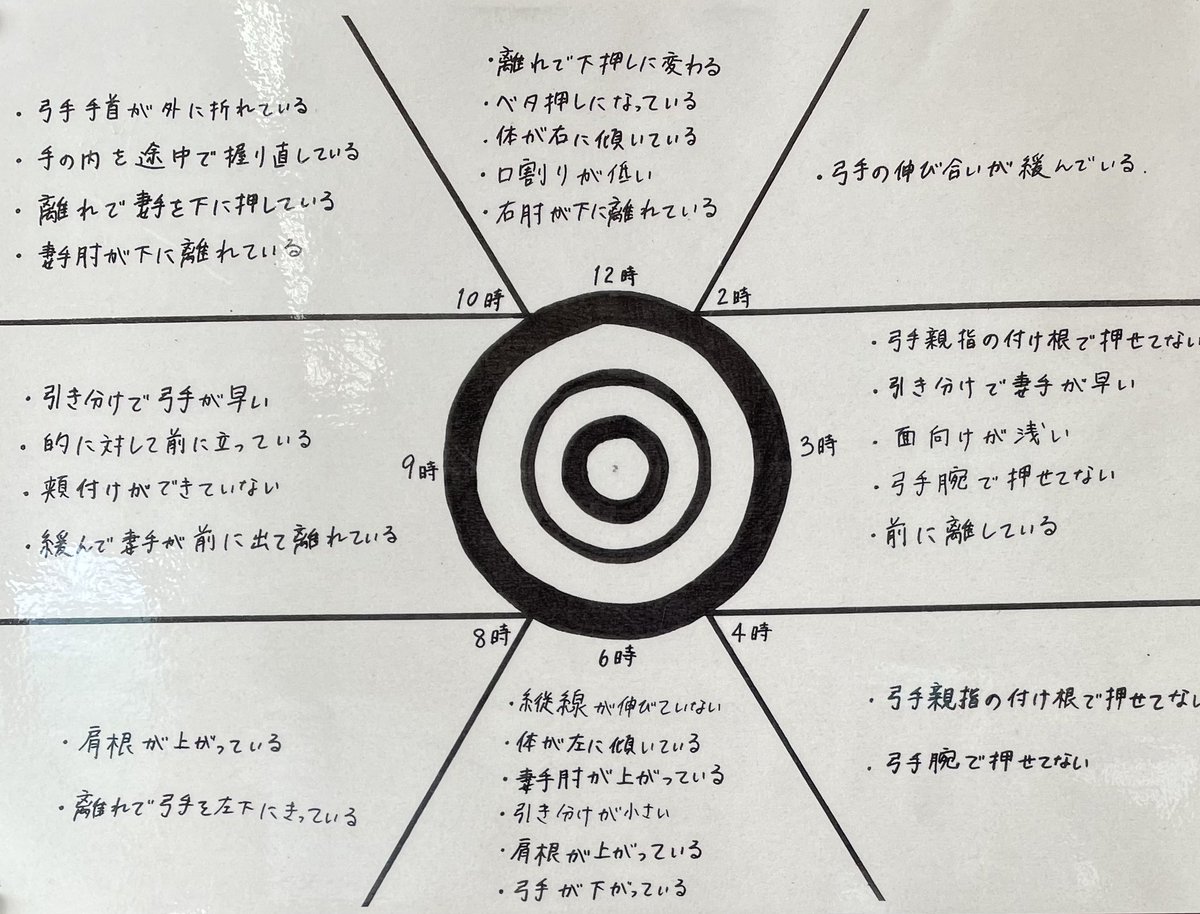 ・離れで下押しに変わる
・ベタ押しになっている
・体が右に傾いている
・口割りが低い
・右肘が下に離れている
12時
・弓手の伸び合いが緩んでいる.
2時
・弓手親指の付け根で押せてない
・引き分けで妻手が早い
・面向けが浅い
・弓手腕で押せてない
・前に離している
3時
4時
・弓手親指の付け根で押せてない
・弓手腕で押せてない
6時
・縦線が伸びていない
・体が左に傾いている
・妻手肘が上がっている
・引き分けが小さい
・肩根が上がっている
・弓手が下がっている
8時
・肩根が上がっている
・離れで弓手を左下にきっている
9時
・引き分けで弓手が早い
・的に対して前に立っている
・頬付けができていない
・緩んで妻手が前に出て離れている
10時
・弓手手首が外に折れている
・手の内を途中で握り直している
・離れで妻手を下に押している
・妻手肘が下に離れている